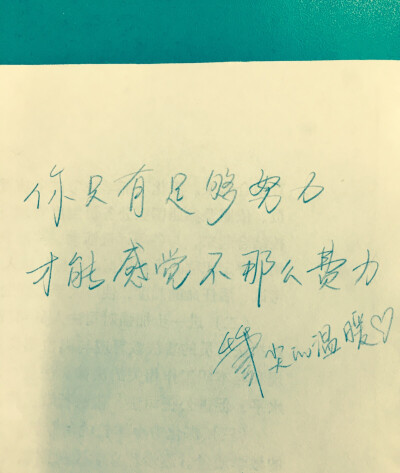 你只有足够努力
才能感觉不那么费力
尖的温暖♡